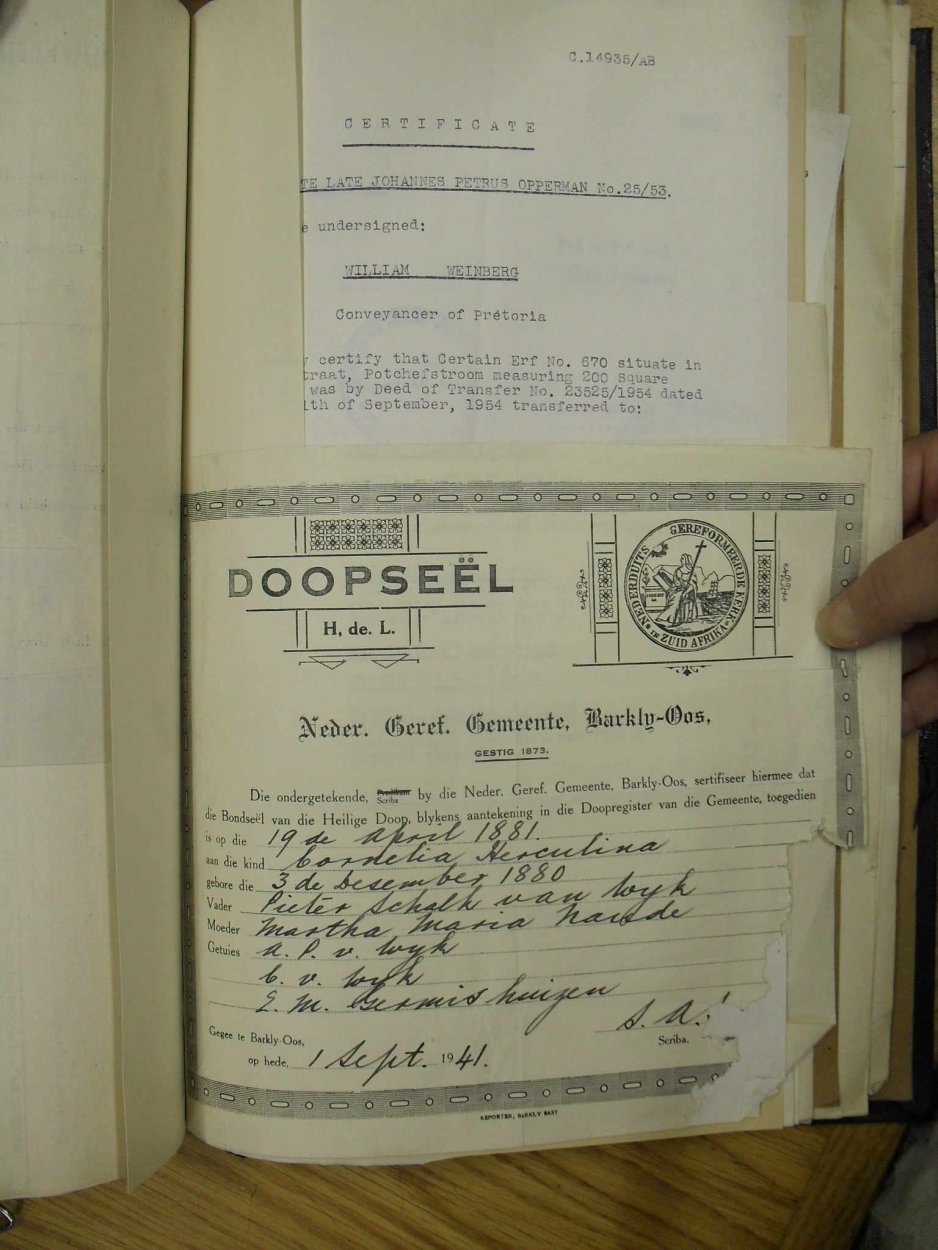 C.14935/AB
CERTIFICATE
TE LATE JOHANNES PETRUS OPPERMAN No.25/53.
e undersigned:
WILLIAM WEINBERG
Conveyancer of Pretoria
y certify that Certain Erf No. 670 situate in
traat, Potchefstroom measuring 200 Square
was by Deed of Transfer No. 23525/1954 dated
th of September, 1954 transferred to:
DOOPSEËL
H. de. L.
NEDERDUITS GEREFORMEERDE KERK IN ZUID AFRIKA
Neder. Geref. Gemeente, Barkly-Oos,
GESTIG 1873.
Die ondergetekende, Predikant Scriba by die Neder. Geref. Gemeente, Barkly-Oos, sertifiseer hiermee dat
die Bondseël van die Heilige Doop, blykens aantekening in die Doopregister van die Gemeente, toegedien
is op die 19 de April 1881.
aan die kind Cornelia Herculina
gebore die 3 de Desember 1880
Vader Pieter Schalk van Wyk
Moeder Martha Maria
Getuies A. P. v. Wyk
C. v. Wyk
E. M. Germishuizen
S. A.
Gegee te Barkly-Oos,
Scriba.
op hede, 1 Sept. 1941.
REPORTER, BARKLY EAST